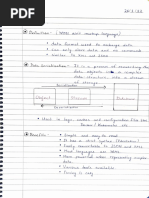 20-1-23
Definition: (YAML ain't markup language)
• data format used to exchange data
• can only store data and no commands
• Similar to XML and JSON
Data Serialization: It is a process of converting the
data objects in a complex
data structure to a stream
of storage
Serialization
Object
Stream
Database
Deserialization
Used in
configuration files like
Docker / Kubernetes etc
Benefits:
• Simple and easy to read
• It has strict syntax (Indentation)
• Easily convertable to JSON and XML
• Most languages use YAML
• More powerful when representing complex
data
• Various tools available
• Parsing is easy